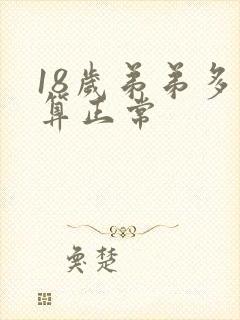 18歲弟弟多
算正常
奧楚